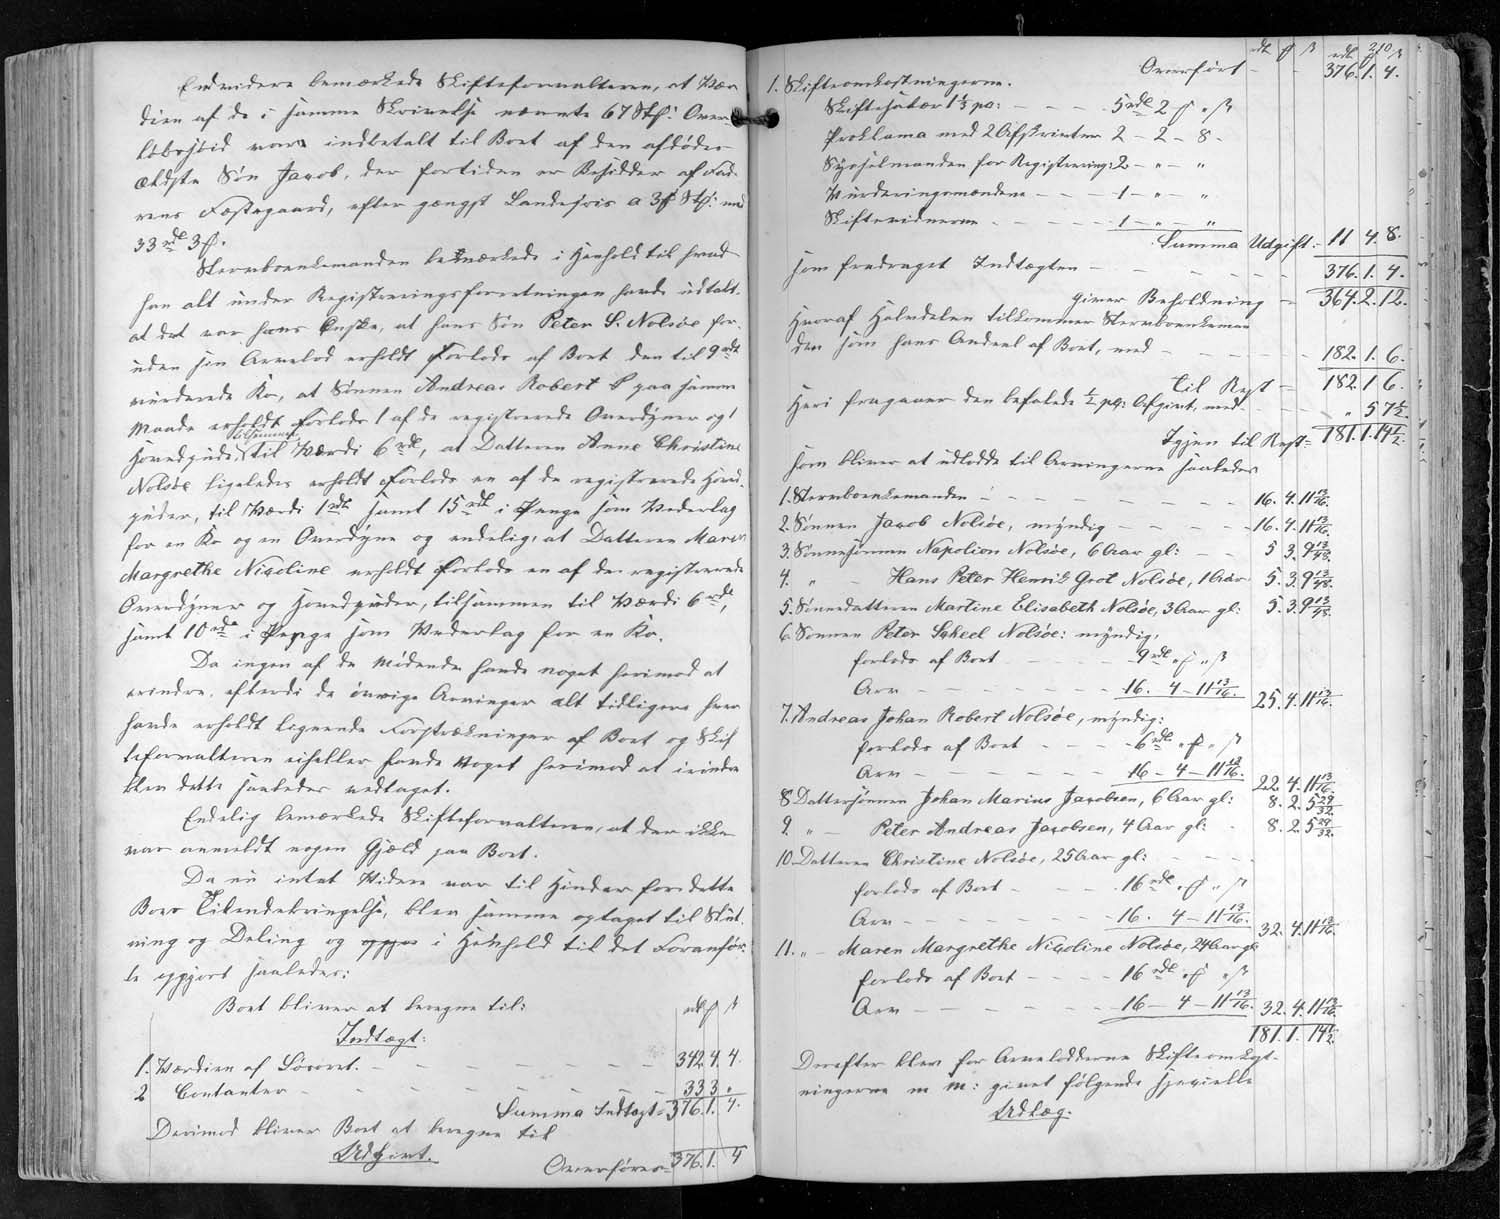 Endvidere bemærkede Skifteforvalteren, at Vær-
dien af de i samme Skrivelse nævnte 67 Skp: Over-
løbsjord vare indbetalt til Boet af den afdødes
ældste Søn Jacob, der fortiden er Besidder af Fad-
rens Fæstegaard, efter gængst Landspris a 3 ƒ Skp: med
33 rdl 3 ƒ.
Stervboenkemanden bemærkede i Henhold til hvad
han alt under Registreringsforretningen havde udtalt,
at det var hans Ønske, at hans Søn Peter S. Nolsøe for-
uden sin Arvelod erholdt forlods af Boet den til 9 rdl
vurderede Ko, at Sønnen Andreas Robert paa samme
Maade erholdt forlods 1 af de registrerede Overdyner og 1
Hovedpude, tilsammen til Værdi 6 rdl, at Datteren Anne Christine
Nolsøe ligeledes erholdt forlods en af de registrerede Hoved-
puder, til Værdi 1 rdl samt 15 rdl i Penge som Vederlag
for en Ko og en Overdyne og endelig, at Datteren Maren
Margrethe Nicoline erholdt forlods en af de registrerede
Overdyner og Hovedpuder, tilsammen til Værdi 6 rdl,
samt 10 rdl i Penge som Vederlag for en Ko.
Da ingen af de Mødende havde noget herimod at
erindre, efterdi de øvrige Arvinger alt tidligere hver
havde erholdt lignende Forstrækninger af Boet og Skif-
teforvalteren eiheller havde noget herimod at erindre
blev dette saaledes vedtaget.
Endelig bemærkede Skifteforvalteren, at der ikke
var anmeldt nogen Gjæld paa Boet.
Da nu intet Videre var til Hinder for dette
Boes Tilendebringelse, blev samme optaget til Slut-
ning og Deling og opgjør i Henhold til det Foranfør-
te opgjort saaledes:
Boet bliver at beregne til:
rdl ƒ ß
Indtægt:
1. Værdien af Løsøret. - - - - - 342. 4. 4.
2 Contanter - - - - - 33 3 "
Summa Indtægt = 376. 1. 4.
Derimod bliver Boet at beregne til
Udgivt.
Overføres = 376. 1. 4
210
rdl ƒ ß rdl ƒ ß
Overført - - 376. 1. 4.
1. Skifteomkostningerne.
Skiftesalær 1 1/3 pc: - - - 5 rdl 2 ƒ " ß
Proklama med 2 Afskrivter 2 - 2 - 8 -
Sysselmanden for Registrering: 2 - " - "
Vurderingsmændene - - - 1 - " - "
Skiftevidnerne - - - - 1 - " - "
Summa Udgift = 11 4. 8.
som fradraget Indtægten - - - - 376. 1. 4.
giver Beholdning = 364. 2. 12.
Hvoraf Halvdelen tilkommer Stervboenkeman
den som hans Andeel af Boet, med - - - - 182. 1. 6.
til Rest = 182. 1 6.
Heri fragaaer den befalede 1/2 pc: Afgivt, med - - " 5 7 1/2
Igjen til Rest = 181. 1. 14 1/2.
som bliver at udlodde til Arvingerne saaledes
1. Stervboenkemanden - - - - - 16. 4. 11 13/16.
2. Sønnen Jacob Nolsøe, myndig - - - - 16. 4. 11 13/16.
3. Sønnesønnen Napolion Nolsøe, 6 Aar gl: - - 5 3. 9 13/48.
4. " - Hans Peter Henrik Grot Nolsøe, 1 Aar 5. 3. 9 13/48.
5. Sønnedatteren Martine Elisabeth Nolsøe, 3 Aar gl: 5. 3. 9 13/48.
6. Sønnen Peter Scheel Nolsøe: myndig,
forlods af Boet - - - - 9 rdl " ƒ " ß
Arv - - - - - 16. 4 - 11 13/16. 25. 4. 11 13/16.
7. Andreas Johan Robert Nolsøe, myndig:
forlods af Boet - - - - 6 rdl " ƒ " ß
Arv - - - - - 16 - 4 - 11 13/16. 22. 4. 11 13/16.
8 Dattersønnen Johan Marius Jacobsen, 6 Aar gl: 8. 2. 5 29/32.
9. " - Peter Andreas Jacobsen, 4 Aar gl: - 8. 2. 5 29/32.
10. Datteren Christine Nolsøe, 25 Aar gl: - - - -
forlods af Boet - - - - 16 rdl " ƒ " ß
Arv - - - - - 16. 4 - 11 13/16. 32. 4. 11 13/16.
11. " - Maren Margrethe Nicoline Nolsøe, 24 Aar gl
forlods af Boet - - - - 16 rdl " ƒ " ß
Arv - - - - - 16 - 4 - 11 13/16. 32. 4. 11 13/16.
181. 1. 14 1/2.
Derefter blev for Arvelodderne Skifteomkost-
ningerne m m: givet følgende specielle
Udlæg.